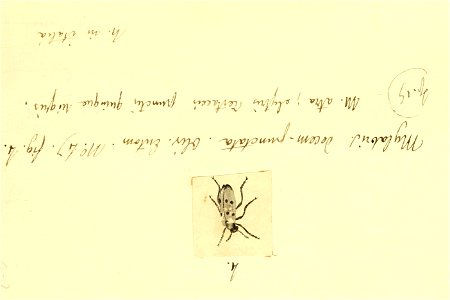 4.
Mylabris decem-punctata. Oliv. Entom. N° 47. fig. 4.
M. atra; elytris testaceis punctis quinque nigris.
h. in italia